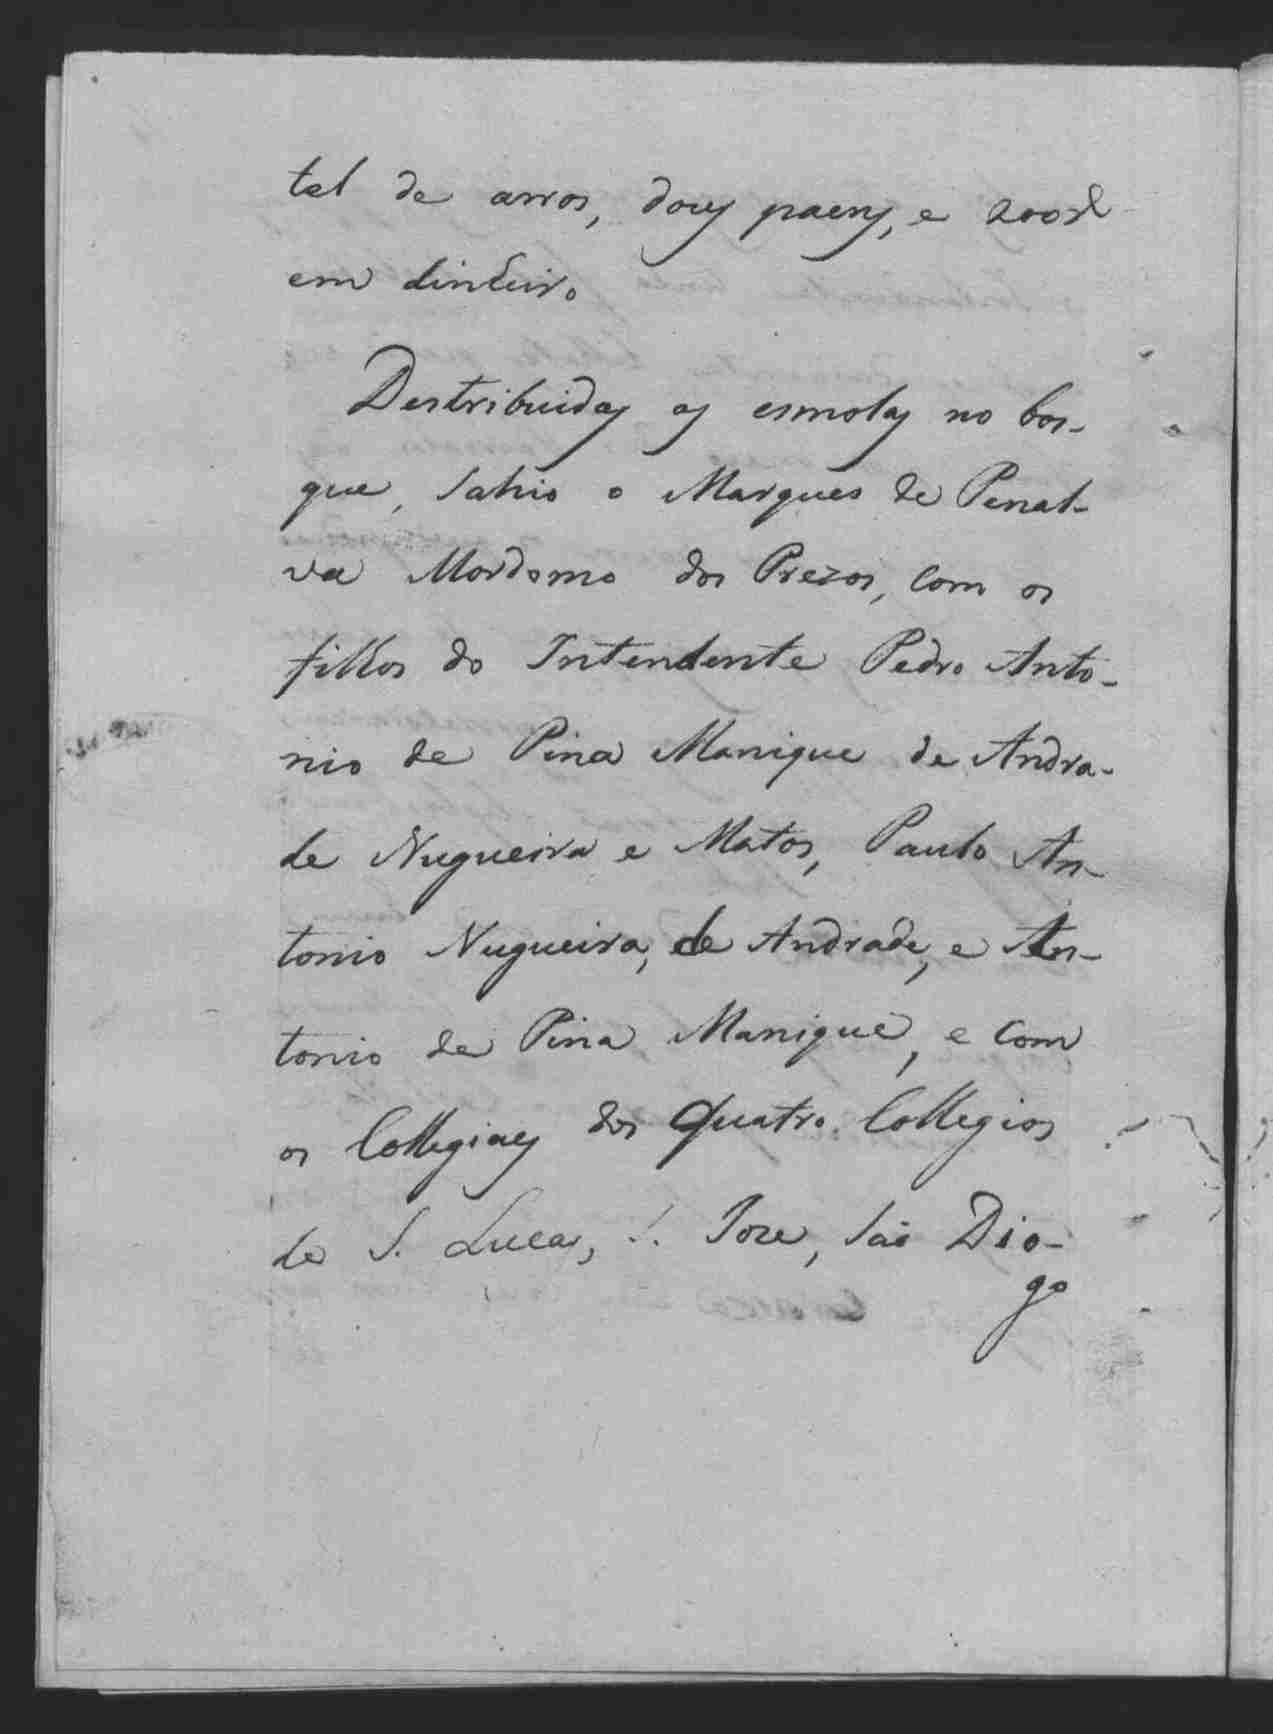 tel de arros, dous paens, e 200 rs
em dinheiro.
Destribuidas as esmolas no bos-
que, Sahio o Marques de Penal-
va Mordomo dos Prezos, com os
filhos do Intendente Pedro Anto-
nio de Pina Manique de Andra-
de Nugueira e Matos, Paulo An-
tonio Nugueira, de Andrade, e An-
tonio de Pina Manique, e com
os Collegiaes dos quatro Collegios
de S. Lucas, S. Joze, Saõ Dio-
go